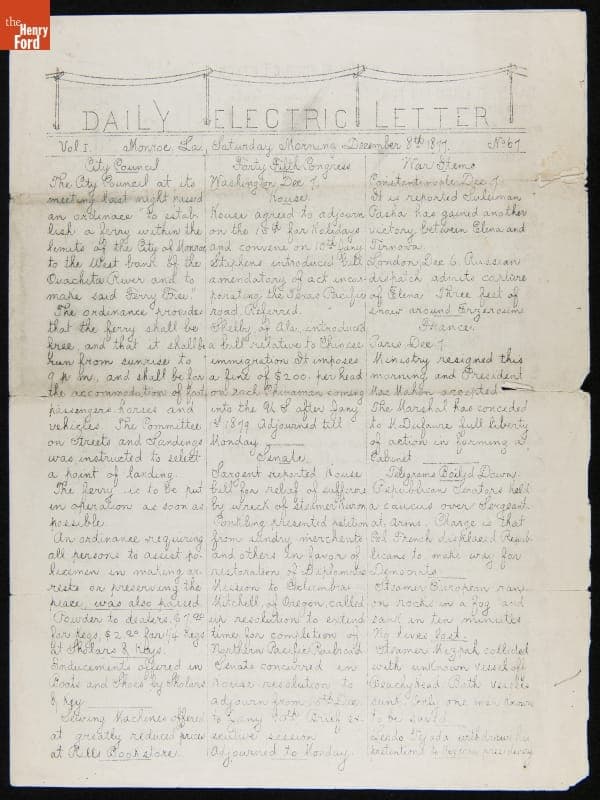 the
Henry
Ford
DAILY ELECTRIC LETTER
Vol I. Monroe, La, Saturday Morning December 8th 1877. No 67
City Council
The City Council at its
meeting last night passed
an ordinace "To estab-
lish a ferry within the
limits of the City of Monroe
to the West bank of the
Ouachita River and to
make said Ferry Free."
The ordinance provides
that the ferry shall be
free, and that it shall be
run from sunrise to
9 p m, and shall be for
the accommodation of foot
passengers horses and
vehicles. The Committee
on Streets and Landings
was instructed to select
a point of landing.
The ferry is to be put
in operation as soon as
possible
An ordinance requiring
all persons to assist po-
licemen in making ar-
rests or preserving the
peace, was also passed
Powder to dealers, $7.00
for kegs, $2.20 for 1/4 kegs
at Sholars & Keys.
Inducements offered in
Boots and Shoes by Sholars
& Key
Sewing Machines offered
at greatly reduced prices
at Hills Bookstore.
Forty Fifth Congress
Washington Dec 7.
House.
House agreed to adjourn
on the 15th for Holidays
and convene on 10th Jany
Stephens introduced bill
amendatory of act incor-
porating the Texas Pacific
road, Referred.
Shelby, of Ala, introduced
a bill relative to Chinese
immigration It imposes
a fine of $200. per head
on each Chinaman coming
into the U S after Jany
1st 1879 Adjourned till
Monday
Senate.
Sargent reported House
bill for relief of sufferers
by wreck of steamer Huron
Conkling presented petition
from sundry merchants
and others in favor of
restoration of Diplomatic
Mission to Columbia
Mitchell, of Oregon, called
up resolution to extend
time for completion of
Northern Pacific Railroad.
Senate concurred in
House resolution to
adjourn from 15th Dec.
to Jany 10th Brief ex-
ecutive session
Adjourned to Monday.
War Items
Constantinople Dec 7.
It is reported Suleiman
Pasha has gained another
victory between Elena and
Tirnova.
London Dec 6. Russian
dispatch admits capture
of Elena Three feet of
snow around Erzeroum
France.
Paris Dec 7.
Ministry resigned this
morning and President
Mac Mahon accepted
The Marshal has conceded
to M Dufaure full liberty
of action in forming a
Cabinet
Telegrams Boil'd Down
Republican Senators held
a caucus over Sergeant-
at Arms. Charge is that
Col French displaced Repub-
licans to make way for
Democrats
Steamer European ran
on rocks in a fog and
sank in ten minutes
No lives lost.
Steamer Mizpah collided
with unknown vessel off
Beachyhead Both vessels
sunk Only one man known
to be saved
Lerdo Tejada withdraws his
pretentions to Mexican presidency